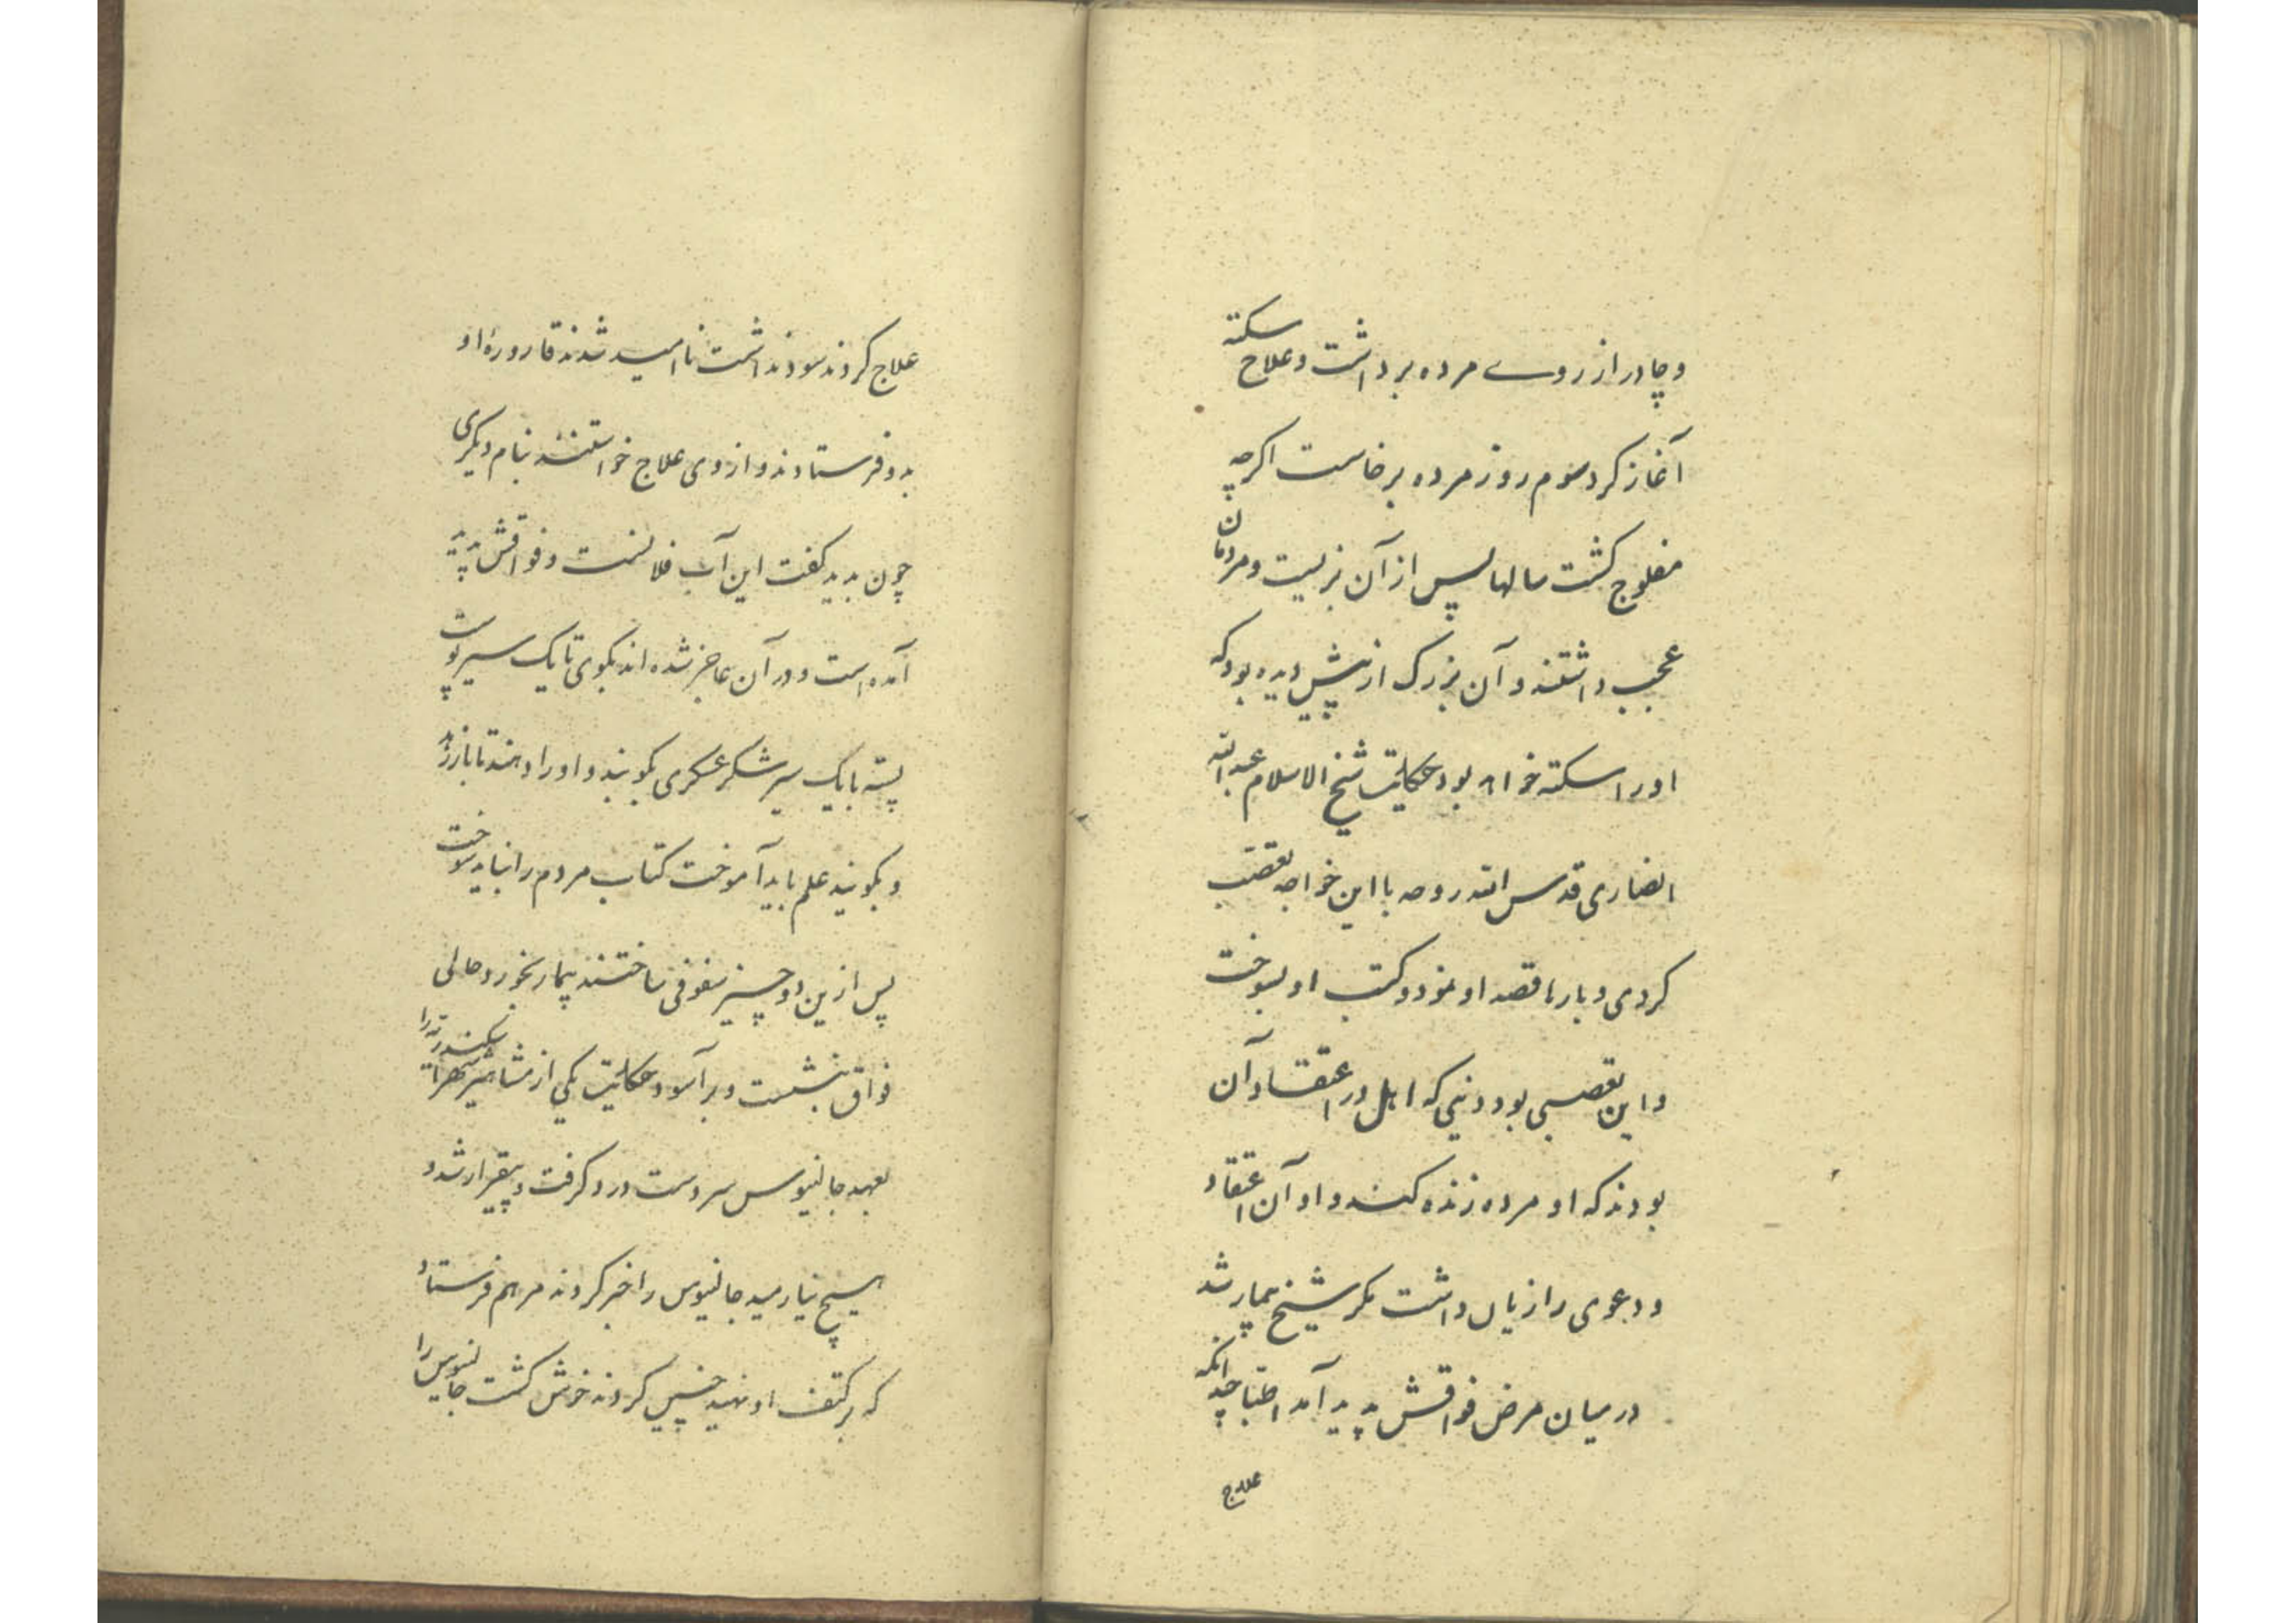 و چادر از روے مرده برداشت و علاج سکته
آغاز کرد سوم روز مرده برخاست اکرچه
مفلوج کشت سالها پس از آن بزیست و مردمان
عجب داشتند و آن بزرک از پیش دیده بود که
او را سکته خواهد بود حکایت شیخ الاسلام عبدالله
انصاری قدس الله روحه با این خواجه تعصب
کردی و بارها قصد او نمود و کتب او بسوخت
و این تعصبی بود دینی که اهل در اعتقاد آن
بودند که او مرده زنده کند و او آن اعتقاد
و دعوی را زیان داشت مکر شیخ بیمار شد
در میان مرض فواقش پدید آمد اطبا چندانکه
علاج
علاج کردند سود نداشت نا امید شدند قاروره او
بدو فرستادند و از وی علاج خواستند بنام دیکری
چون بدید کفت این آب فلانست و فواقش پدید
آمده است و در آن عاجز شده اند بکوی تا یک سیر پوست
پسته با یک سیر شکر عسکری بکویند و او را دهند تا باز رهد
و بکویند علم باید آموخت کتاب مردم را نباید سوخت
پس ازین دو چیز سفوفی ساختند بیمار بخورد و حالی
فواق بنشست و برآسود حکایت یکی از مشاهیر شهر اسکندریه را
بعهد جالینوس سر دست درد کرفت و بیقرار شد و
هیچ نیارمید جالینوس را خبر کردند مرهم فرستاد
که بر کتف او نهید چنین کردند خوش کشت جالینوس را